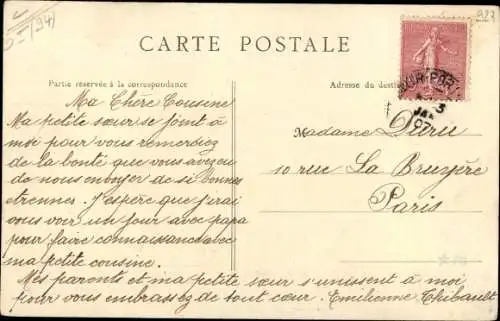 CARTE POSTALE
Partie réservée à la correspondance
Adresse du destin
Ma Chère Cousine
Ma petite sœur se joint à
moi pour vous remerciez
de la bonté que vous avez eu
de nous envoyer de si bonnes
etrennes. J'espère que j'irai
vous voir un jour avec papa
pour faire connaissance avec
ma petite cousine.
Mes parents et ma petite sœur s'unissent à moi
pour vous embrassez de tout cœur. Emilienne Thibault
Madame Duru
10 rue La Bruyère
Paris
JAN
07